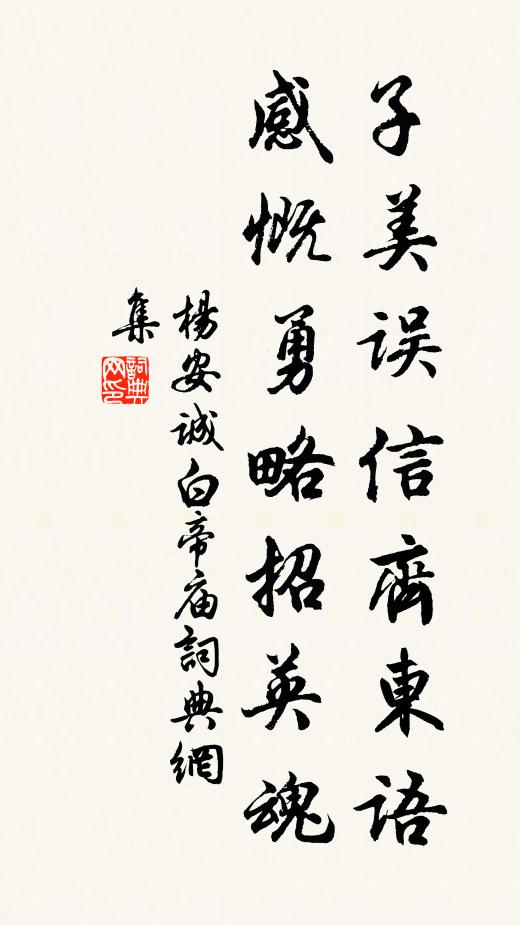 子美误信齊東語
感慨勇略招英魂
楊安诚白帝庙詞典網
集
詞典
网印